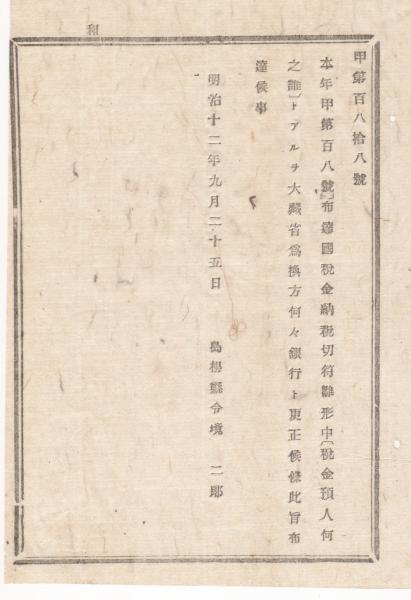 甲第百八拾八號
本年甲第百八號布達國税金納税切符雛形中〔税金預人何
之誰〕トアルヲ大藏省爲換方何々銀行ト更正候條此旨布
達候事
明治十二年九月二十五日　島根縣令境　二郎